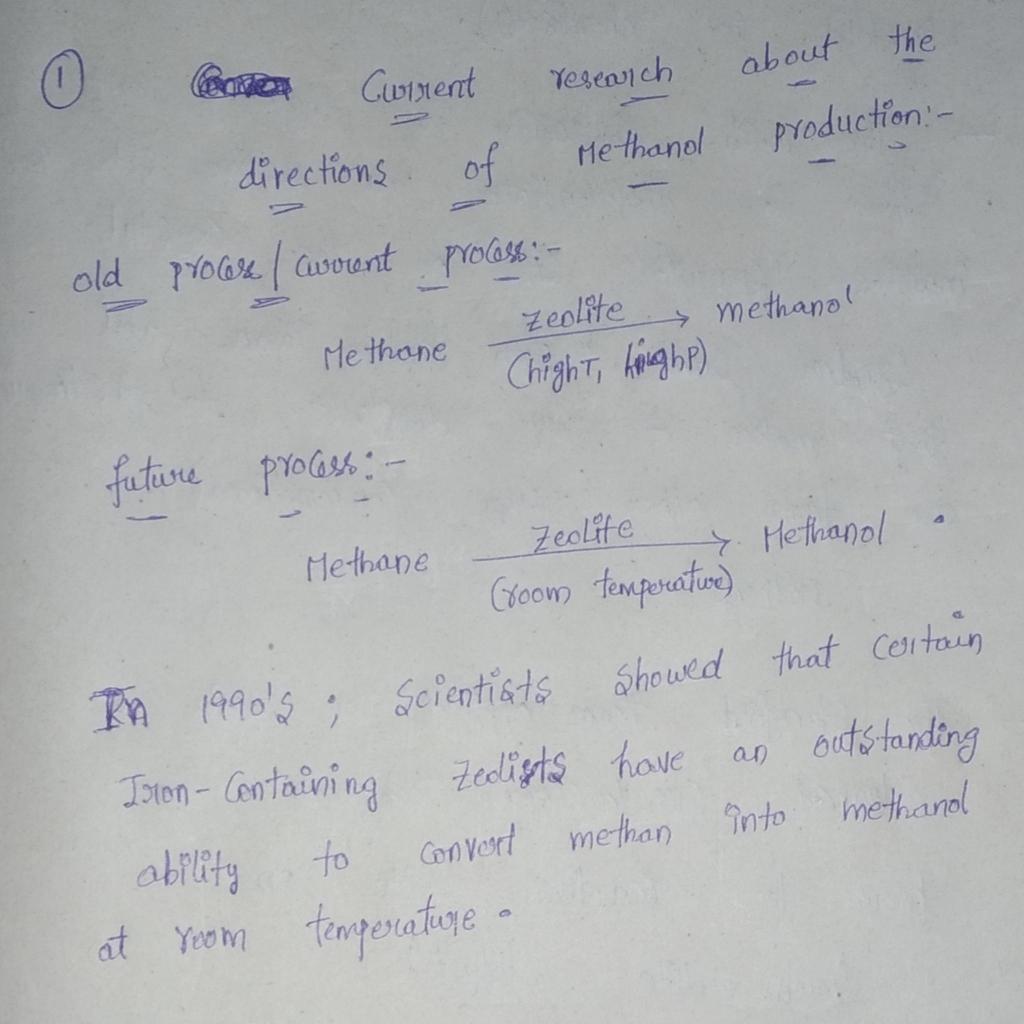 ① Current research about the
directions of Methanol production:-
old process / current process:-
Methane zeolite → methanol
(high T, high P)
future process:-
Methane Zeolite → Methanol.
(room temperature)
In 1990's; Scientists showed that certain
Iron-Containing zeolists have an outstanding
ability to convert methan into methanol
at room temperature.